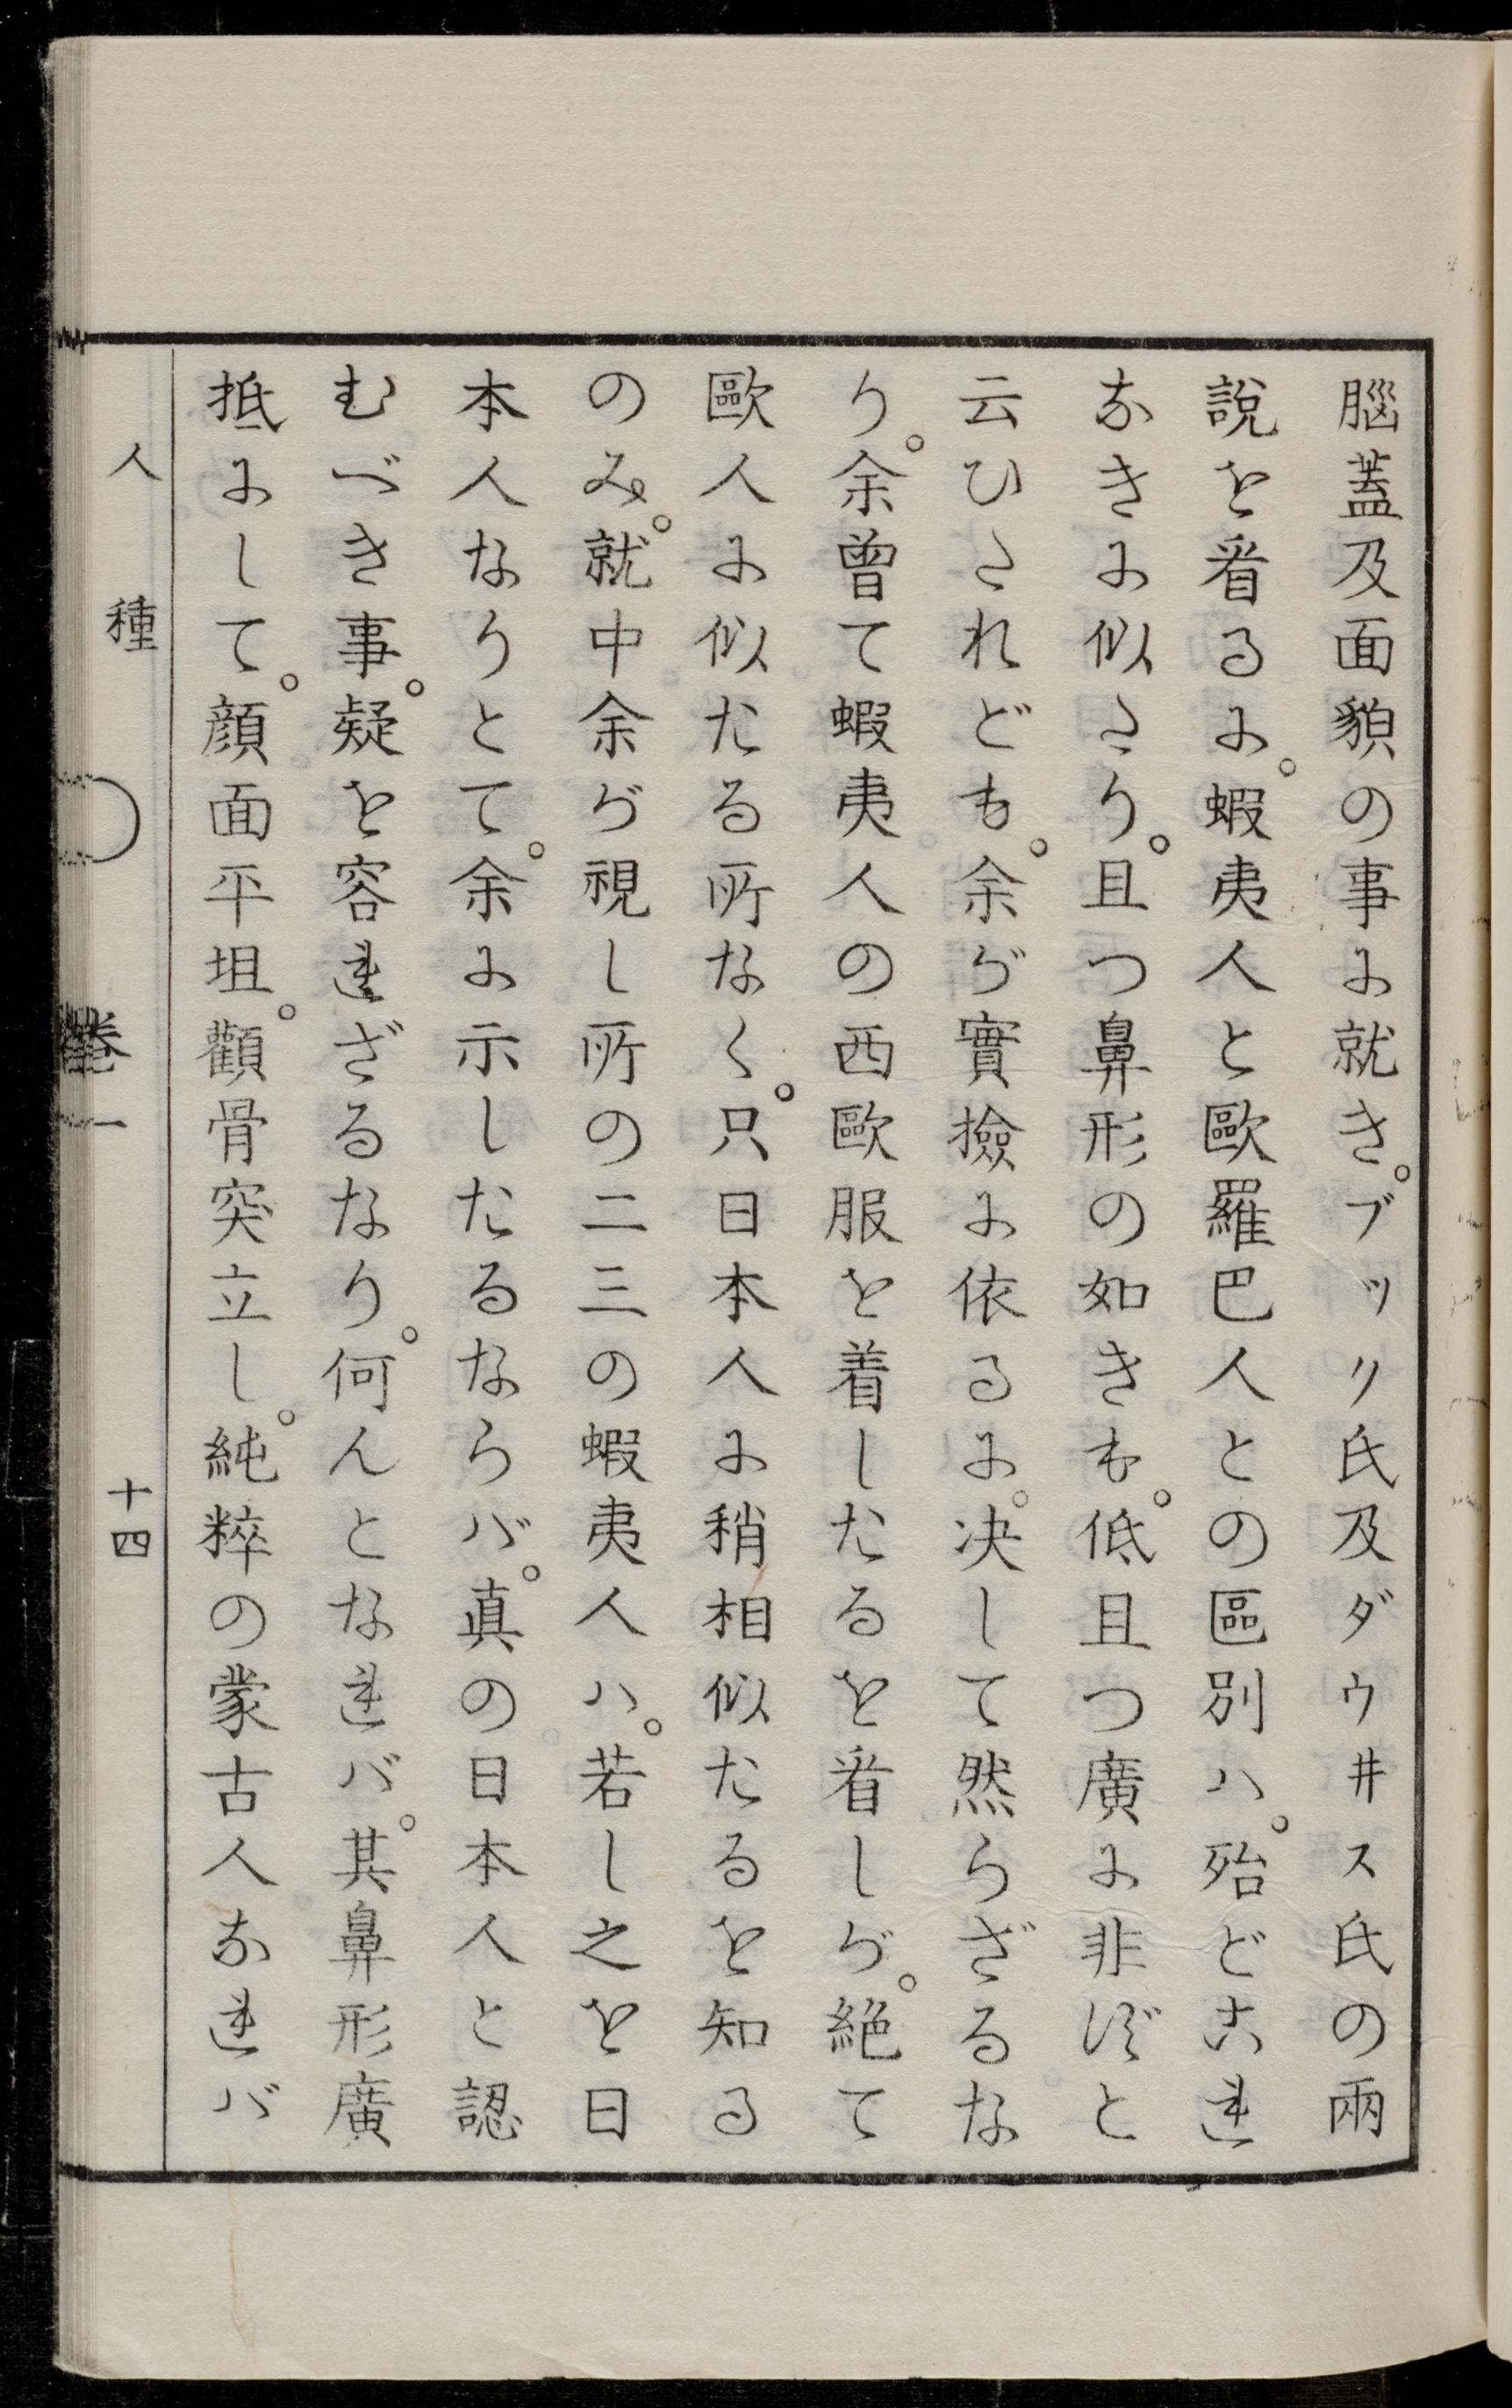 腦蓋及面貌の事に就き。ブッリ氏及ダウ井ス氏の兩
說を看るに。蝦夷人と歐羅巴人との區別ハ。殆どこれ
なきに似たり。且つ鼻形の如きも。低且つ廣に非ずと
云ひたれども。余が實撿に依るに。决して然らざるな
り。余曾て蝦夷人の西歐服を着したるを看しが。絕て
歐人に似たる所なく。只日本人に稍相似たるを知る
のみ。就中余が視し所の二三の蝦夷人ハ。若し之を日
本人なりとて。余に示したるならバ。真の日本人と認
むべき事。疑を容れざるなり。何んとなれバ。其鼻形廣
抵にして。顏面平坦。顴骨突立し。純粹の蒙古人なれバ
人種 卷一 十四